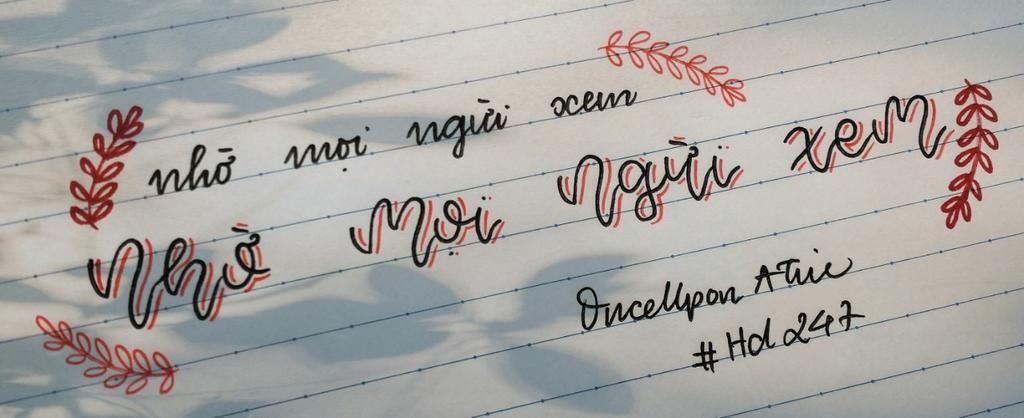 nhờ mọi ngừi xem
Nhờ mọi ngừi xem
OnceUpon ATric
#Hd247